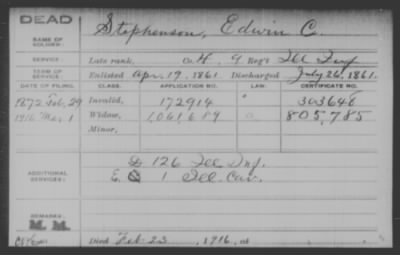 DEAD
NAME OF SOLDIER: Stephenson, Edwin C.
SERVICE: Late rank, Co. H, 9 Reg't Ill Inf
TERM OF SERVICE: Enlisted Apr. 19, 1861. Discharged July 26, 1861.
DATE OF FILING. CLASS. APPLICATION NO. LAW. CERTIFICATE NO.
1872 Feb, 29 Invalid, 172914 303648
1916 Mar 1 Widow, 1,061,689 805,785
Minor,
ADDITIONAL SERVICES: D 126 Ill Inf.
E. 1 Ill. Cav.
REMARKS:
M. M.
Died Feb 23, 1916, at